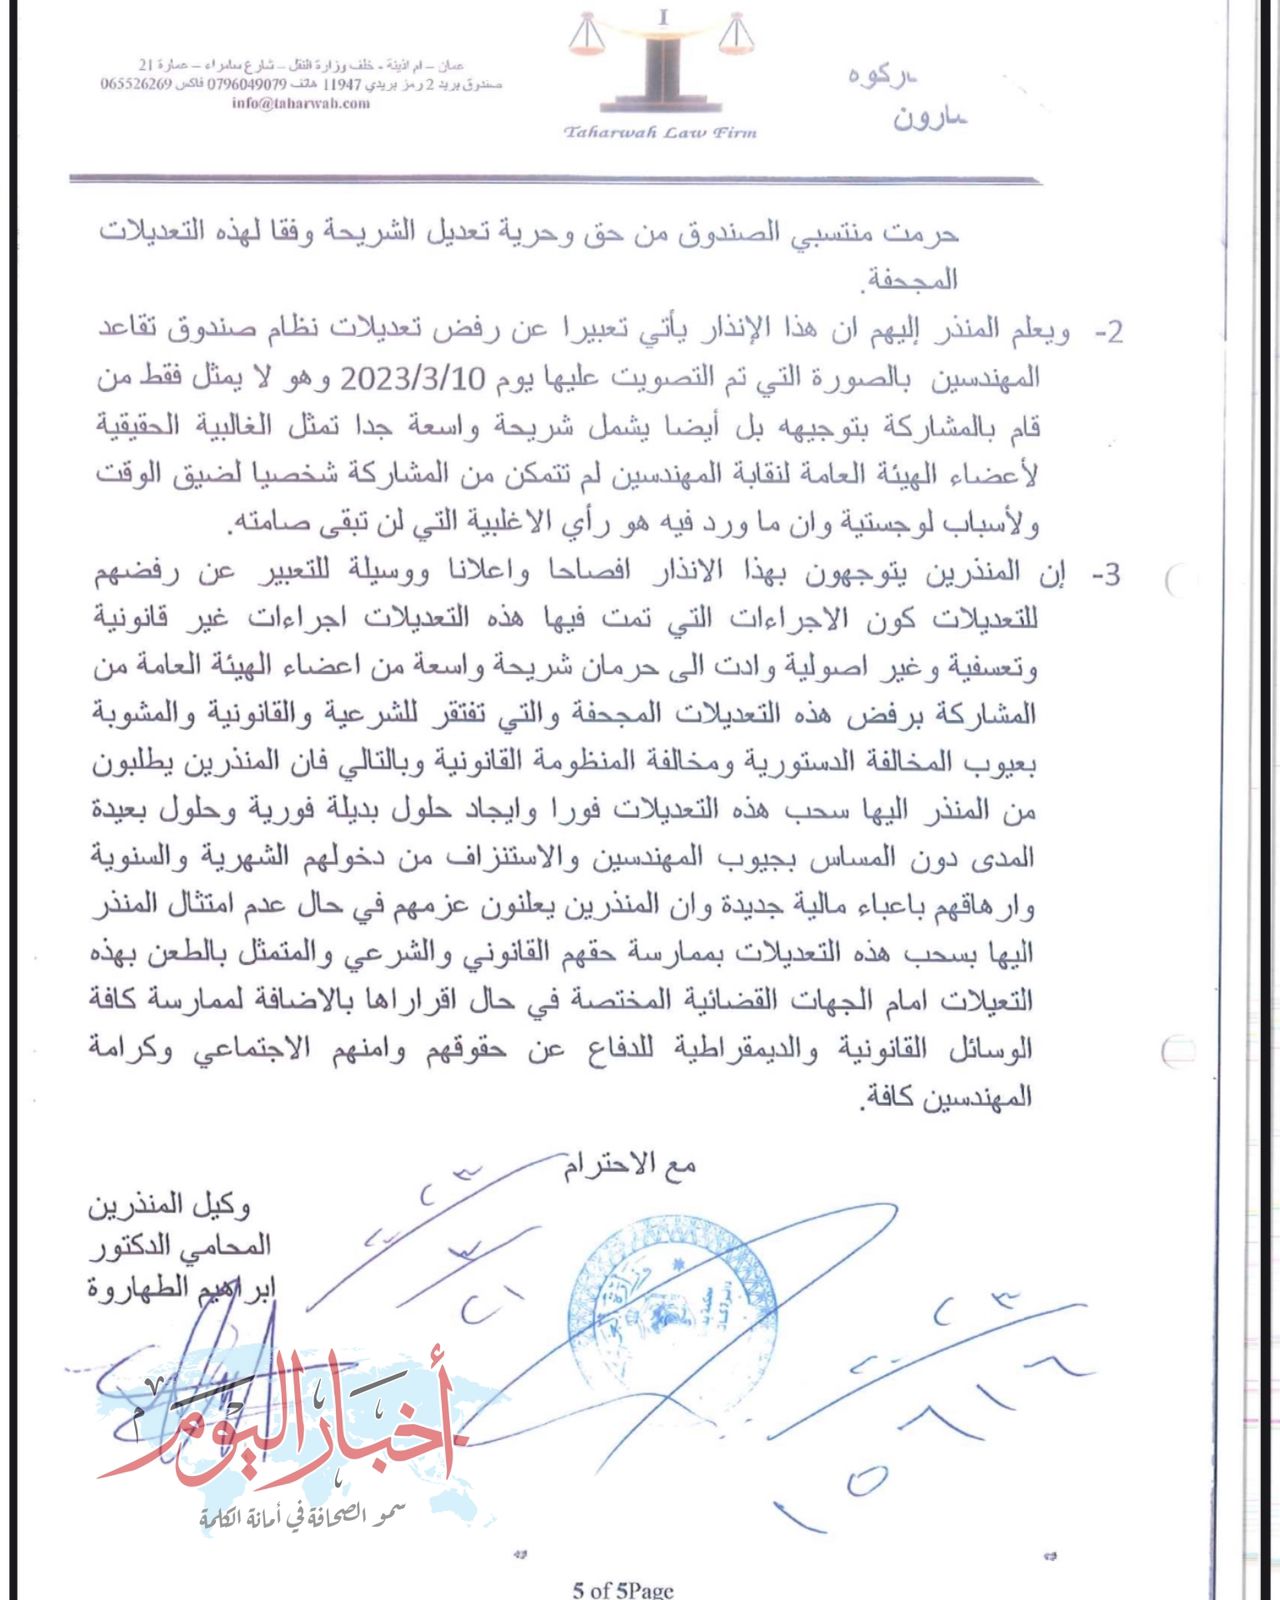 عمان – ام اذينة - خلف وزارة النقل – شارع سامراء – عمارة 21
صندوق بريد 2 رمز بريدي 11947 هاتف 0796049079 فاكس 065526269
info@taharwah.com
Taharwah Law Firm
حرمت منتسبي الصندوق من حق وحرية تعديل الشريحة وفقا لهذه التعديلات
المجحفة.
2- ويعلم المنذر إليهم ان هذا الإنذار يأتي تعبيرا عن رفض تعديلات نظام صندوق تقاعد
المهندسين بالصورة التي تم التصويت عليها يوم 2023/3/10 وهو لا يمثل فقط من
قام بالمشاركة بتوجيهه بل أيضا يشمل شريحة واسعة جدا تمثل الغالبية الحقيقية
لأعضاء الهيئة العامة لنقابة المهندسين لم تتمكن من المشاركة شخصيا لضيق الوقت
ولأسباب لوجستية وان ما ورد فيه هو رأي الاغلبية التي لن تبقى صامته.
3- إن المنذرين يتوجهون بهذا الانذار افصاحا واعلانا ووسيلة للتعبير عن رفضهم
للتعديلات كون الاجراءات التي تمت فيها هذه التعديلات اجراءات غير قانونية
وتعسفية وغير اصولية وادت الى حرمان شريحة واسعة من اعضاء الهيئة العامة من
المشاركة برفض هذه التعديلات المجحفة والتي تفتقر للشرعية والقانونية والمشوبة
بعيوب المخالفة الدستورية ومخالفة المنظومة القانونية وبالتالي فان المنذرين يطلبون
من المنذر اليها سحب هذه التعديلات فورا وايجاد حلول بديلة فورية وحلول بعيدة
المدى دون المساس بجيوب المهندسين والاستنزاف من دخولهم الشهرية والسنوية
وارهاقهم باعباء مالية جديدة وان المنذرين يعلنون عزمهم في حال عدم امتثال المنذر
اليها بسحب هذه التعديلات بممارسة حقهم القانوني والشرعي والمتمثل بالطعن بهذه
التعيلات امام الجهات القضائية المختصة في حال اقراراها بالاضافة لممارسة كافة
الوسائل القانونية والديمقراطية للدفاع عن حقوقهم وامنهم الاجتماعي وكرامة
المهندسين كافة.
مع الاحترام
وكيل المنذرين
المحامي الدكتور
ابراهيم الطهاروة
أخبار اليوم
سمو الصحافة في أمانة الكلمة
5 of 5Page